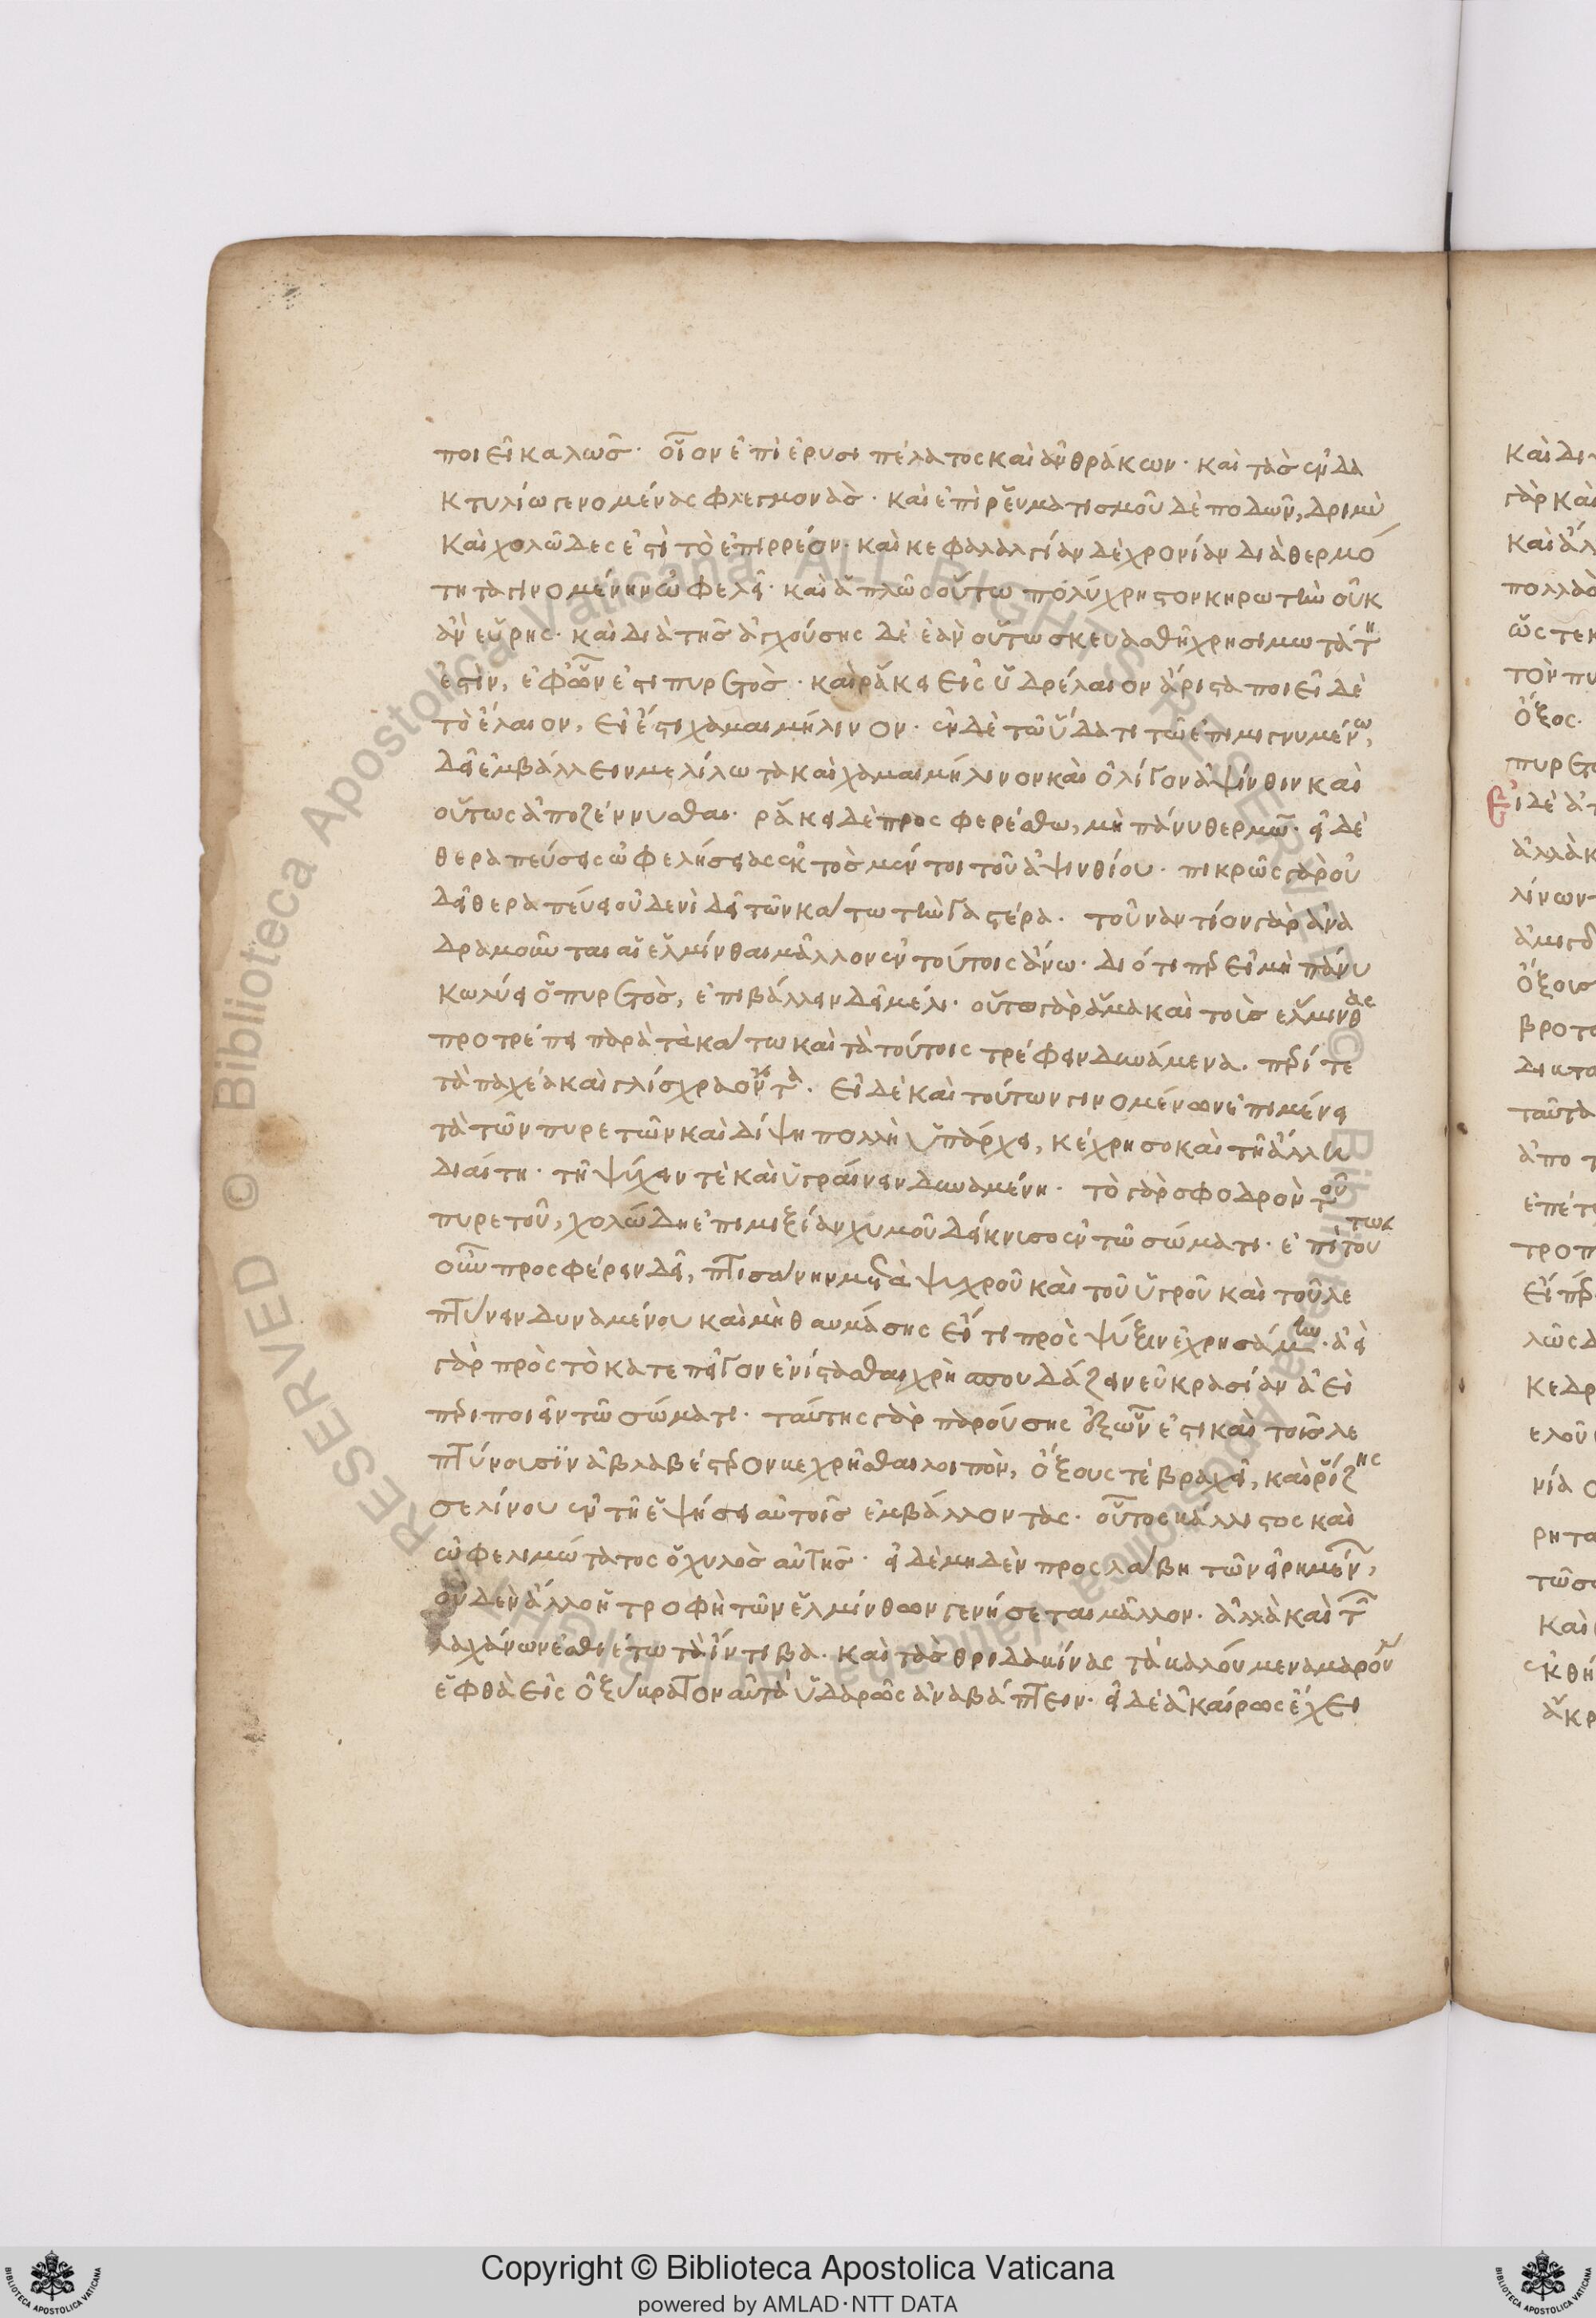 ποιεῖ καλῶς· οἷον ἐπὶ ἐρυσιπέλατος καὶ ἀνθράκων· καὶ τὰς ἐν δα
κτυλίω γενομένας φλεγμονὰς· καὶ ἐπὶ ῥευματισμοῦ δὲ ποδῶν, δριμὺ
καὶ χολῶδες ἐστὶ τὸ ἐπιρρέον· καὶ κεφαλαλγίαν δὲ χρονίαν διὰ θερμό
τητα γινομένην ὠφελεῖ· καὶ ἁπλῶς οὕτω πολύχρηστον κηρωτὴν οὐκ
ἂν εὕρης· καὶ διὰ τῆς ἀγχούσης δὲ ἐὰν οὕτω σκευασθῆ χρησιμωτάτη
ἐστὶν, ἐφ' ὧν ἐστι πυρετὸς· καὶ ῥάκει εἰς ὑδρέλαιον ἄριστα ποιεῖ δὲ
τὸ ἔλαιον, εἰ ἔστι χαμαιμήλινον· ἐν δὲ τῶ ὕδατι τῶ ἐπιμιγνυμένω,
δεῖ ἐμβάλλειν μελίλωτα καὶ χαμαιμήλινον καὶ ὀλίγον ἀψίνθιν καὶ
οὕτως ἀποζέννυσθαι· ῥάκει δὲ προσφερέσθω, μὴ πάνυ θερμῶ· εἰ δὲ
θεραπεύσεις ὠφελήσεις ἐκτὸς μέντοι τοῦ ἀψινθίου· πικρῶς γὰρ οὐ
δεῖ θεραπεύειν οὐδενὶ δεῖ τῶν κάτω τὴν γαστέρα· τοὐναντίον γὰρ ἀνα
δραμοῦνται αἱ ἕλμινθαι μᾶλλον ἐν τούτοις ἄνω· διότιπερ εἰ μὴ πάνυ
κωλύει ὁ πυρετὸς, ἐπιβάλλειν δεῖ μέλι· οὕτω γὰρ ἅμα καὶ τοὺς ἕλμινθας
προτρέπει παρὰ τὰ κάτω καὶ τὰ τούτοις τρέφειν δυνάμενα·
τὰ παχέα καὶ γλίσχρα ὄντα· εἰ δὲ καὶ τούτων γινομένων ἐπιμένει
τὰ τῶν πυρετῶν καὶ δίψη πολλὴ ὑπάρχει, κέχρησο καὶ τῆ ἄλλη
διαίτη· τῆ ψύχειν τὲ καὶ ὑγραίνειν δυναμένη· τὸ γὰρ σφοδρὸν τοῦ
πυρετοῦ, χολώδη ἐπιμιξίαν χυμοῦ δείκνυσιν ἐν τῶ σώματι· ἐπὶ τούτων
οὖν προσφέρειν δεῖ, πτισάνην μετὰ ψυχροῦ καὶ τοῦ ὑγροῦ καὶ τοῦ λε
πτύνειν δυναμένου καὶ μὴ θαυμάσης εἴ τι πρὸς ψύξιν ἐχρησάμην· ἀεὶ
γὰρ πρὸς τὸ κατεπεῖγον ἐνίστασθαι χρὴ σπουδάζειν εὐκρασίαν ἀεὶ
περιποιεῖν τῶ σώματι· ταύτης γὰρ παρούσης ἔστι καὶ τοῖς λε
πτύνουσιν ἀβλαβέστερον κεχρῆσθαι λοιπὸν, ὄξους τὲ βραχεῖ, καὶ ῥίζης
σελίνου ἐν τῆ ἑψήσει αὐτοῖς ἐμβάλλοντας· οὗτος κάλλιστος καὶ
ὠφελιμώτατος ὁ χυλὸς αὐτῆς· εἰ δὲ μηδὲν προσλάβη τῶν εἰρημένων,
οὐδὲν ἄλλο ἢ τροφὴ τῶν ἑλμίνθων γενήσεται μᾶλλον· ἀλλὰ καὶ τῶν
λαχάνων ἐσθιέτω τὰ ἴντιβα· καὶ τὰς θριδακίνας τὰ καλούμενα μαρούλια
ἑφθὰ εἰς ὀξύκρατον αὐτὰ ὑδαρῶς ἀναβάπτειν· εἰ δὲ ἀκαίρως ἔχει
Copyright © Biblioteca Apostolica Vaticana
powered by AMLAD·NTT DATA